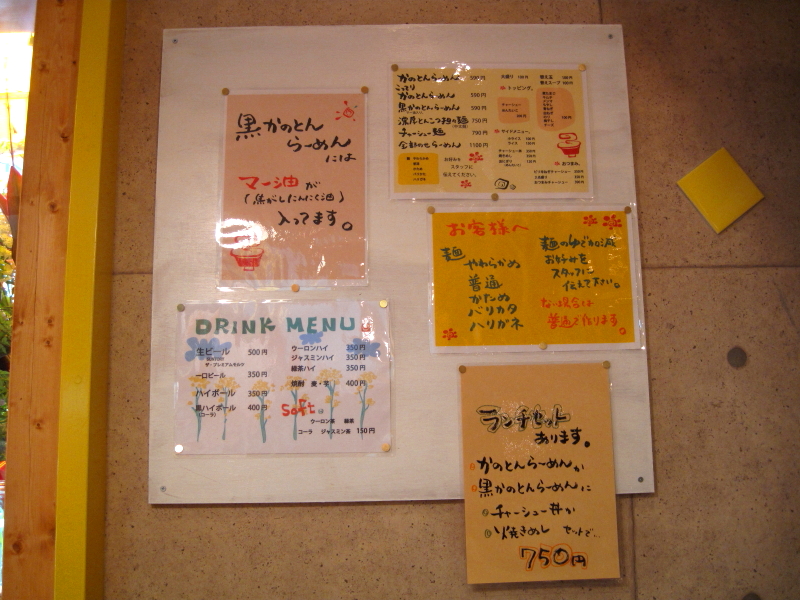 黒かのとん
らーめん
には
マー油が
(焦がしにんにく油)
入ってます。
かのとんらーめん 590円
こってり
かのとんらーめん 590円
黒かのとんらーめん 590円
チャーシュー麺 790円
全部のせらーめん 1100円
大盛り
替え玉
トッピング。
チャーシュー
サイドメニュー。
ライス
お好みを
スタッフに
伝えてください。
おつまみ。
お客様へ
麺
やわらかめ
普通
かため
バリカタ
ハリガネ
麺のゆで加減
お好みを
スタッフに
伝えて下さい。
ない場合は
普通で作ります。
DRINK MENU
生ビール 500円
ザ・プレミアムモルツ
一口ビール 350円
ハイボール 350円
黒ハイボール 400円
(コーラ)
ウーロンハイ 350円
ジャスミンハイ 350円
緑茶ハイ 350円
焼酎 麦・芋 400円
Soft
ウーロン茶 緑茶
コーラ ジャスミン茶 150円
ランチセット
あります。
かのとんらーめんか
黒かのとんらーめんに
チャーシュー丼か
焼きめし セットで..
750円